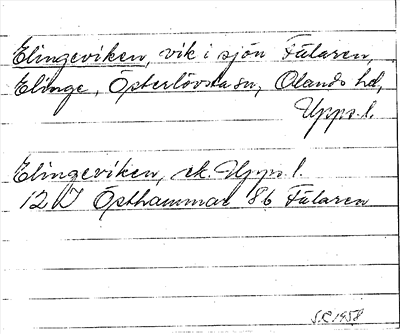 Elingeviken, vik i sjön Fälaren,
Elinge, Österlövsta sn, Olands hd,
Upps. l.
Elingeviken, ek. Upps. l.
12 I Östhammar 8b Fälaren
S.C. 1958